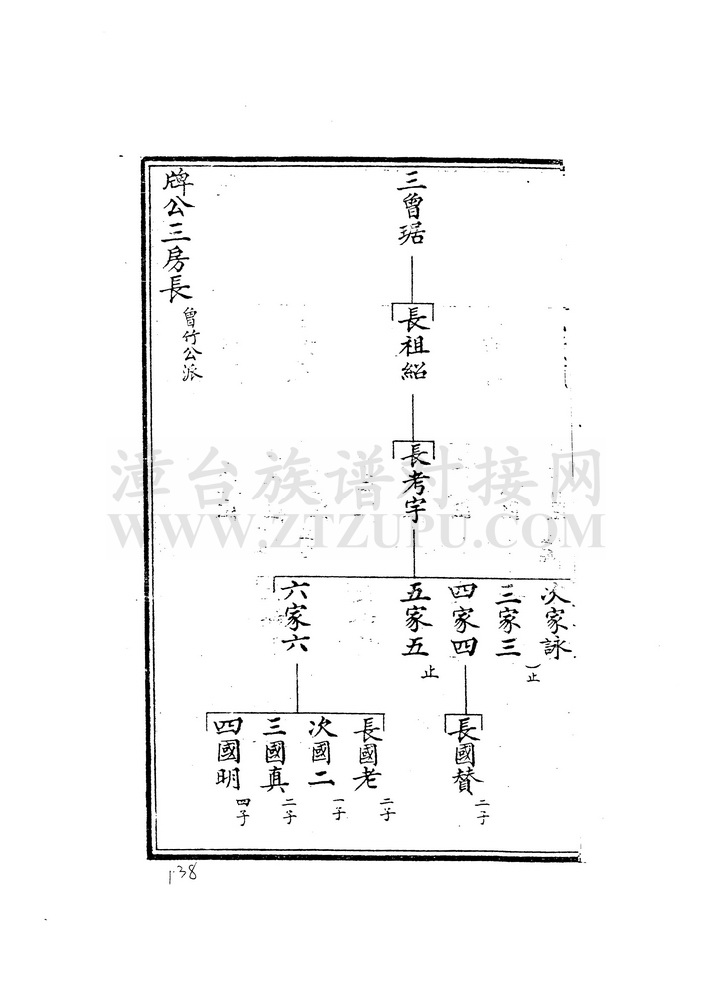 三曾琚
長祖紹
長考宇
次家詠
三家三
止
四家四
五家五
止
六家六
長國贊
二子
長國老
二子
次國二
一子
三國真
二子
四國明
四子
牌公三房長
曾竹公派
138
漳台族谱对接网
WWW.ZTZUPU.COM